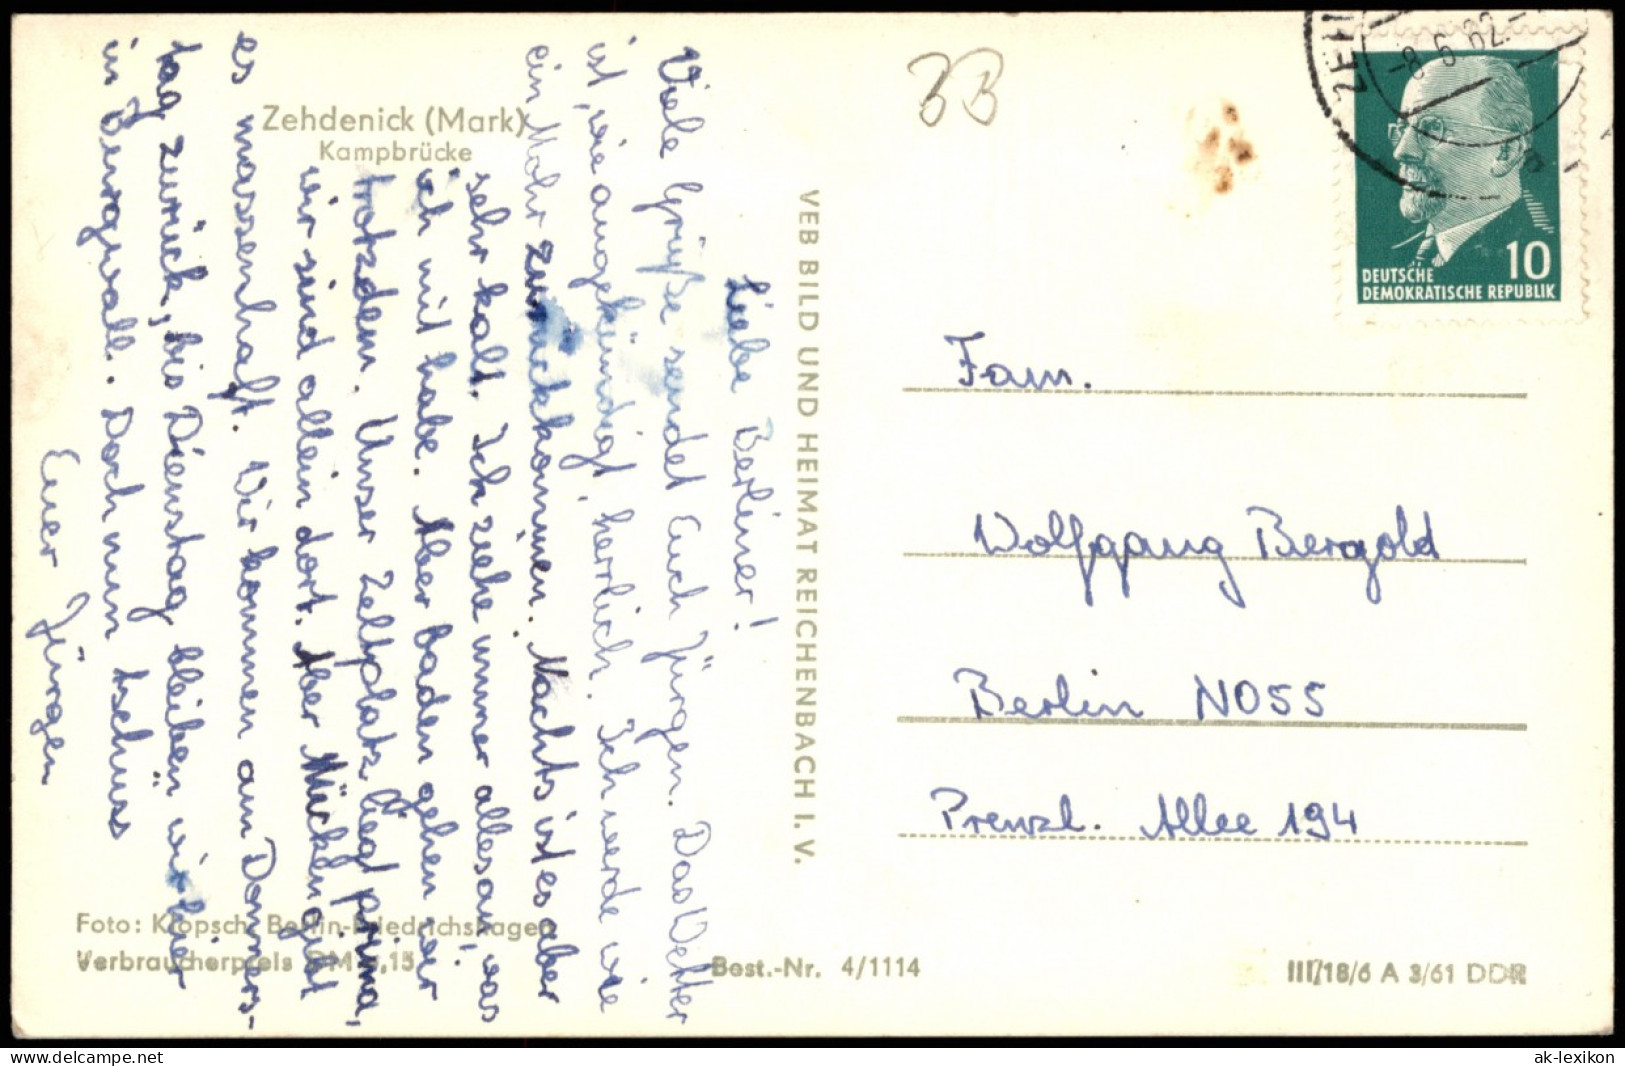 Zehdenick (Mark)
Kampbrücke
Liebe Berliner!
Viele Grüße sendet Euch Jürgen. Das Wetter
ist, wie angekündigt, herrlich. Ich werde wie
ein Mohr zurückkommen. Nachts ist es aber
sehr kalt. Ich ziehe immer alles an, was
ich mit habe. Aber baden gehen wir
trotzdem. Unser Zeltplatz liegt prima,
wir sind allein dort. Aber Mücken gibt
es massenhaft. Wir kommen am Donners-
tag zurück, bis Dienstag bleiben wir hier
in Burgwall. Doch nun tschüss
Euer Jürgen
Foto: Kropsch, Berlin-Friedrichshagen
Verbraucherpreis DM 0,15
VEB BILD UND HEIMAT REICHENBACH I. V.
Best.-Nr. 4/1114
III/18/6 A 3/61 DDR
-8.6.62.-
10
DEUTSCHE
DEMOKRATISCHE REPUBLIK
Fam.
Wolfgang Bergold
Berlin NO55
Prenzl. Allee 194
ak-lexikon